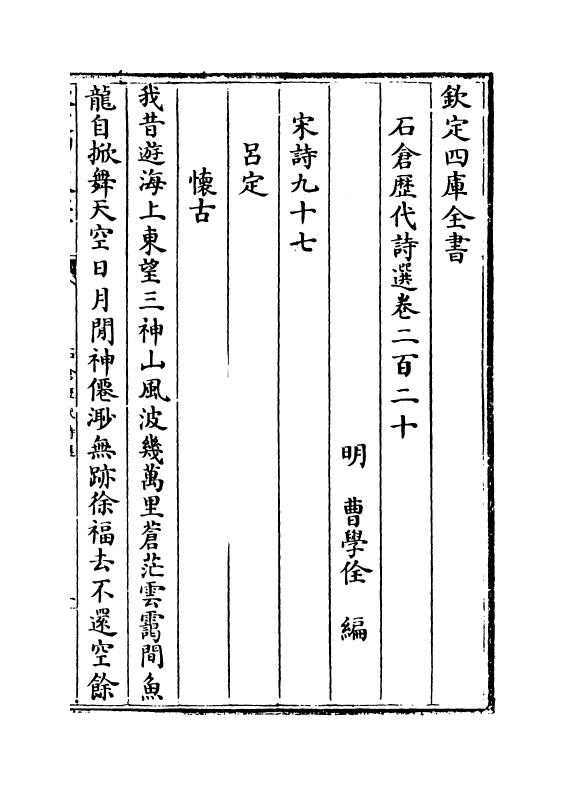 欽定四庫全書
石倉歴代詩選卷二百二十
明 曹學佺 編
宋詩九十七
呂定
懷古
我昔遊海上東望三神山風波幾萬里蒼茫雲靄間魚
龍自掀舞天空日月閒神僊渺無跡徐福去不還空餘